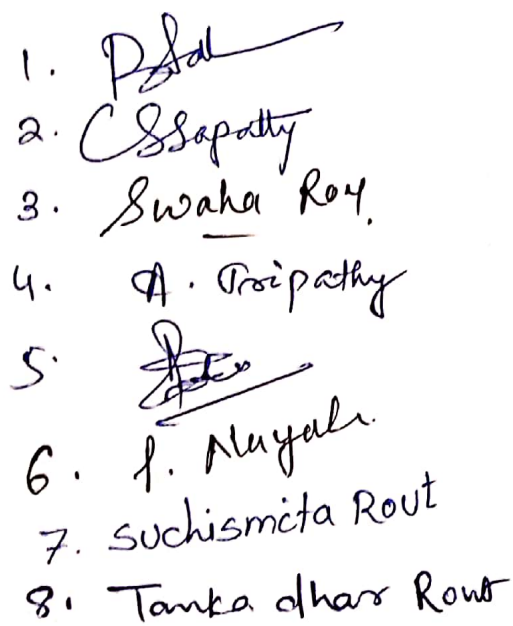 1.
2. CSSapatty
3. Swaha Roy.
4. A. Tripathy
5.
6. P. Nayak.
7. Suchismita Rout
8. Tanka dhar Rout